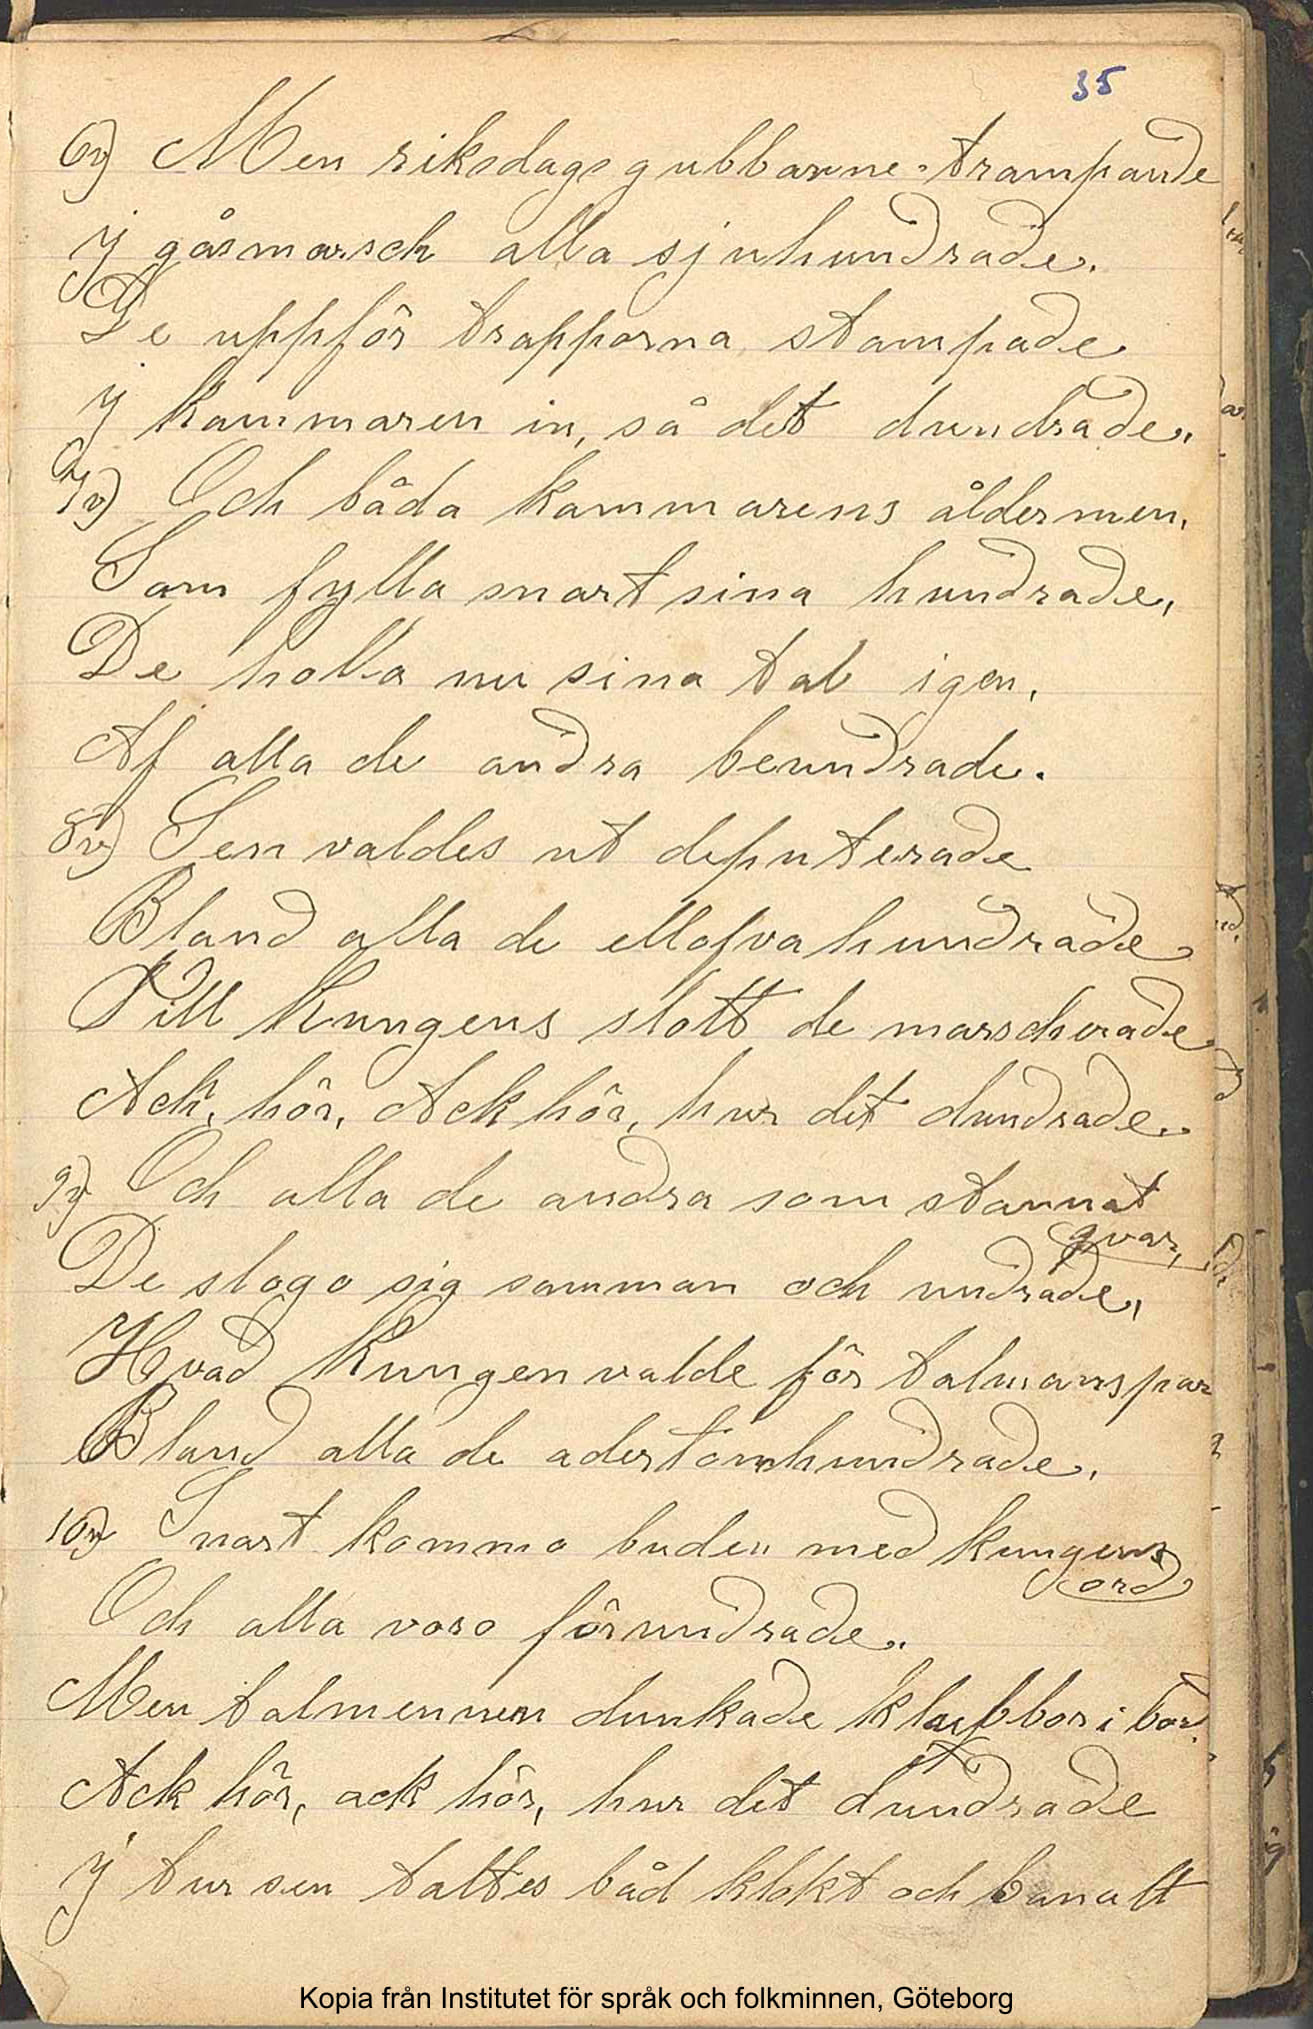 35
6v) Men riksdagsgubbarne trampande
I gåsmarsch alla sjuhundrade.
De uppför trapporna stampade
I kammaren in, så det dundrade.
7v) Och båda kammarens åldermen,
Som fylla snart sina hundrade,
De holla nu sina tal igen,
Af alla de andra beundrade.
8v) Sen valdes ut deputerade
Bland alla de ellofvahundrade
Till Kungens slott de marscherade
Ack, hör, Ack hör, hur det dundrade.
9v Och alla de andra som stannat
qvar,
De slogo sig samman och undrade,
Hvad Kungen valde för talmanspar
Bland alla de adertonhundrade.
10v Snart kommo buden med kungens
ord
Och alla voro förundrade.
Men talmennen dunkade klubbor i bord
Ack hör, ack hör, hur det dundrade
I tur sen taltes båd klokt och banalt
Kopia från Institutet för språk och folkminnen, Göteborg